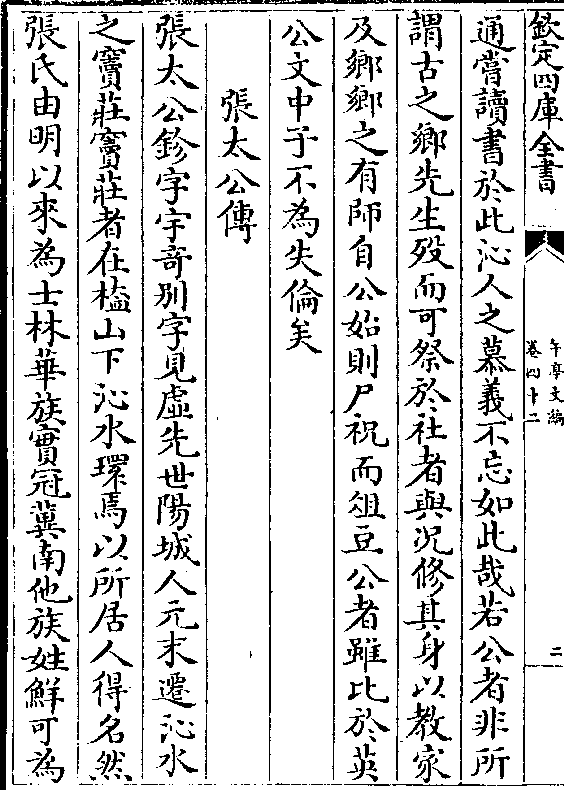 欽定四庫全書
午亭文編
卷四十二
二
通嘗讀書於此沁人之慕義不忘如此哉若公者非所
謂古之鄉先生殁而可祭於社者與況修其身以教家
及鄉鄉之有師自公始則尸祝而俎豆公者雖比於英
公文中子不為失倫矣
張太公傳
張太公鉁字宇竒別字見虛先世陽城人元末遷沁水
之竇莊竇莊者在榼山下沁水環焉以所居人得名然
張氏由明以來為士林華族實冠冀南他族姓鮮可為